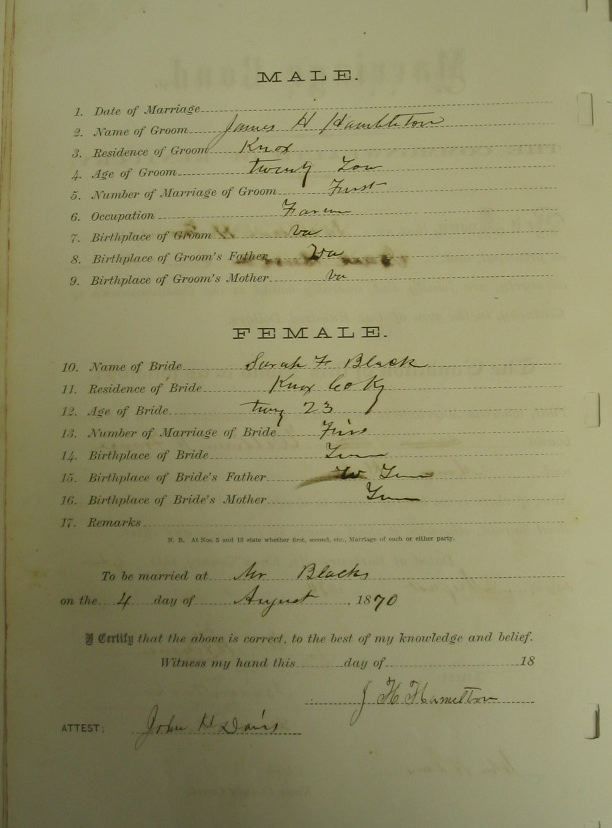 MALE.
1. Date of Marriage
2. Name of Groom James H Hambleton
3. Residence of Groom Knox
4. Age of Groom twenty
5. Number of Marriage of Groom First
6. Occupation Farm
7. Birthplace of Groom va
8. Birthplace of Groom's Father Va
9. Birthplace of Groom's Mother va
FEMALE.
10. Name of Bride Sarah F Black
11. Residence of Bride Knox Co Ky
12. Age of Bride 23
13. Number of Marriage of Bride Firs
14. Birthplace of Bride
15. Birthplace of Bride's Father
16. Birthplace of Bride's Mother
17. Remarks
N. B. At Nos. 5 and 13 state whether first, second, etc., Marriage of each or either party.
To be married at Mr Blacks
on the 4 day of August , 1870
I Certify that the above is correct, to the best of my knowledge and belief.
Witness my hand this day of 18
J H Hamilton
ATTEST: John H Davis